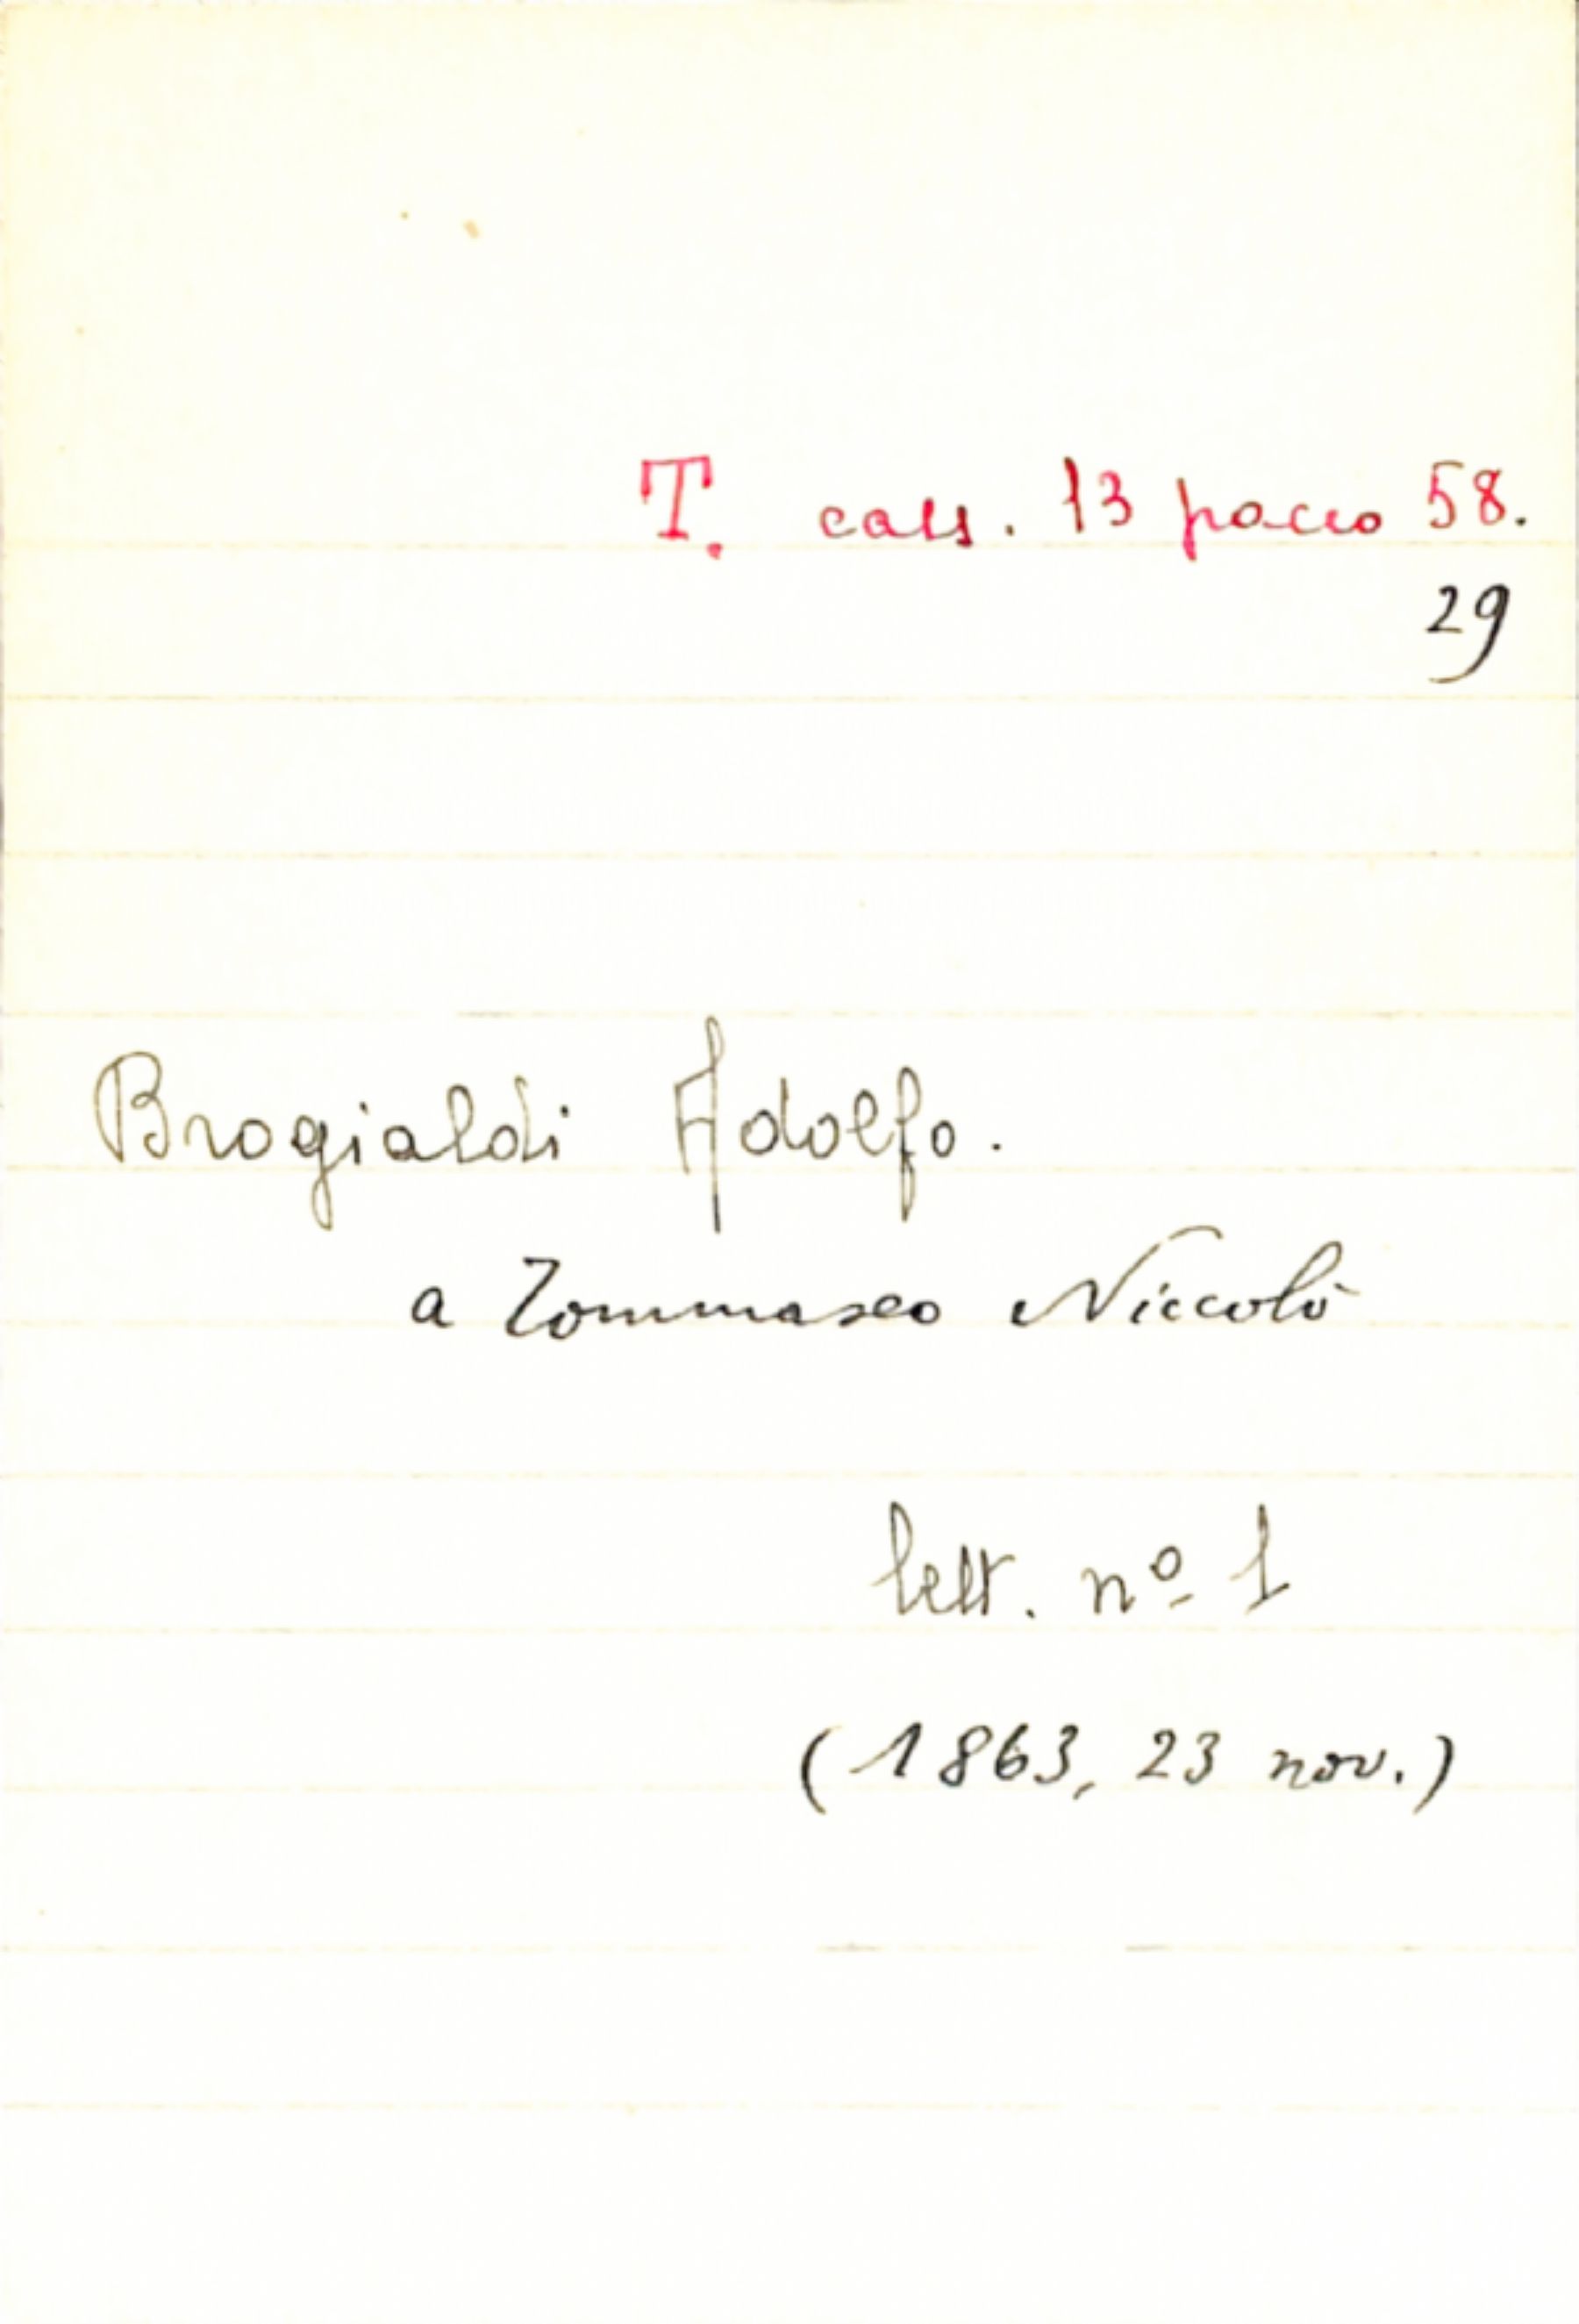 T. cass. 13 pacco 58.
29
Brogialdi Adolfo.
a Tommaseo Niccolò
lett. nº 1
(1863, 23 nov.)